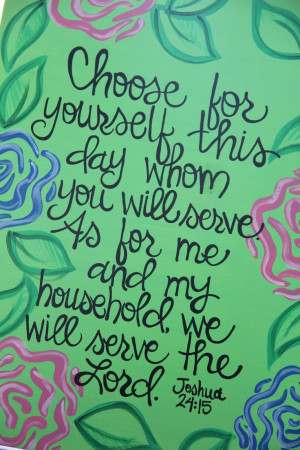 Choose for
yourself this
day whom
you will serve.
As for me
and my
household, we
will serve the
Lord.
Joshua
24:15